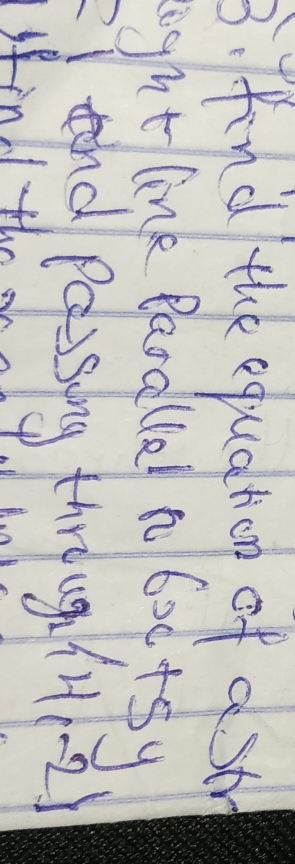 3. find the equation of a str
aight line parallel to 6x + 5y
and passing through (4, -2)
find the